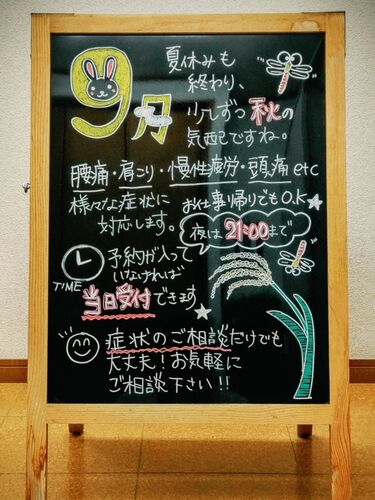 9月
夏休みも
終わり、
少しずつ秋の
気配ですね。
腰痛・肩こり・慢性疲労・頭痛etc
様々な症状に
対応します。
お仕事帰りでもO.K
夜は21:00まで
TIME
予約が入って
いなければ
当日受付できます
症状のご相談だけでも
大丈夫！お気軽に
ご相談下さい!!